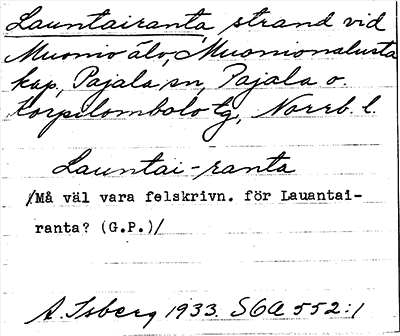 Launtairanta, strand vid
Muonio älv, Muonionalusta
kap, Pajala sn, Pajala o.
Korpilombolo tg, Norrb. l.
Launtai-ranta
/Må väl vara felskrivn. för Lauantai-
ranta? (G.P.)/
A. Isberg 1933. SOA 552:1